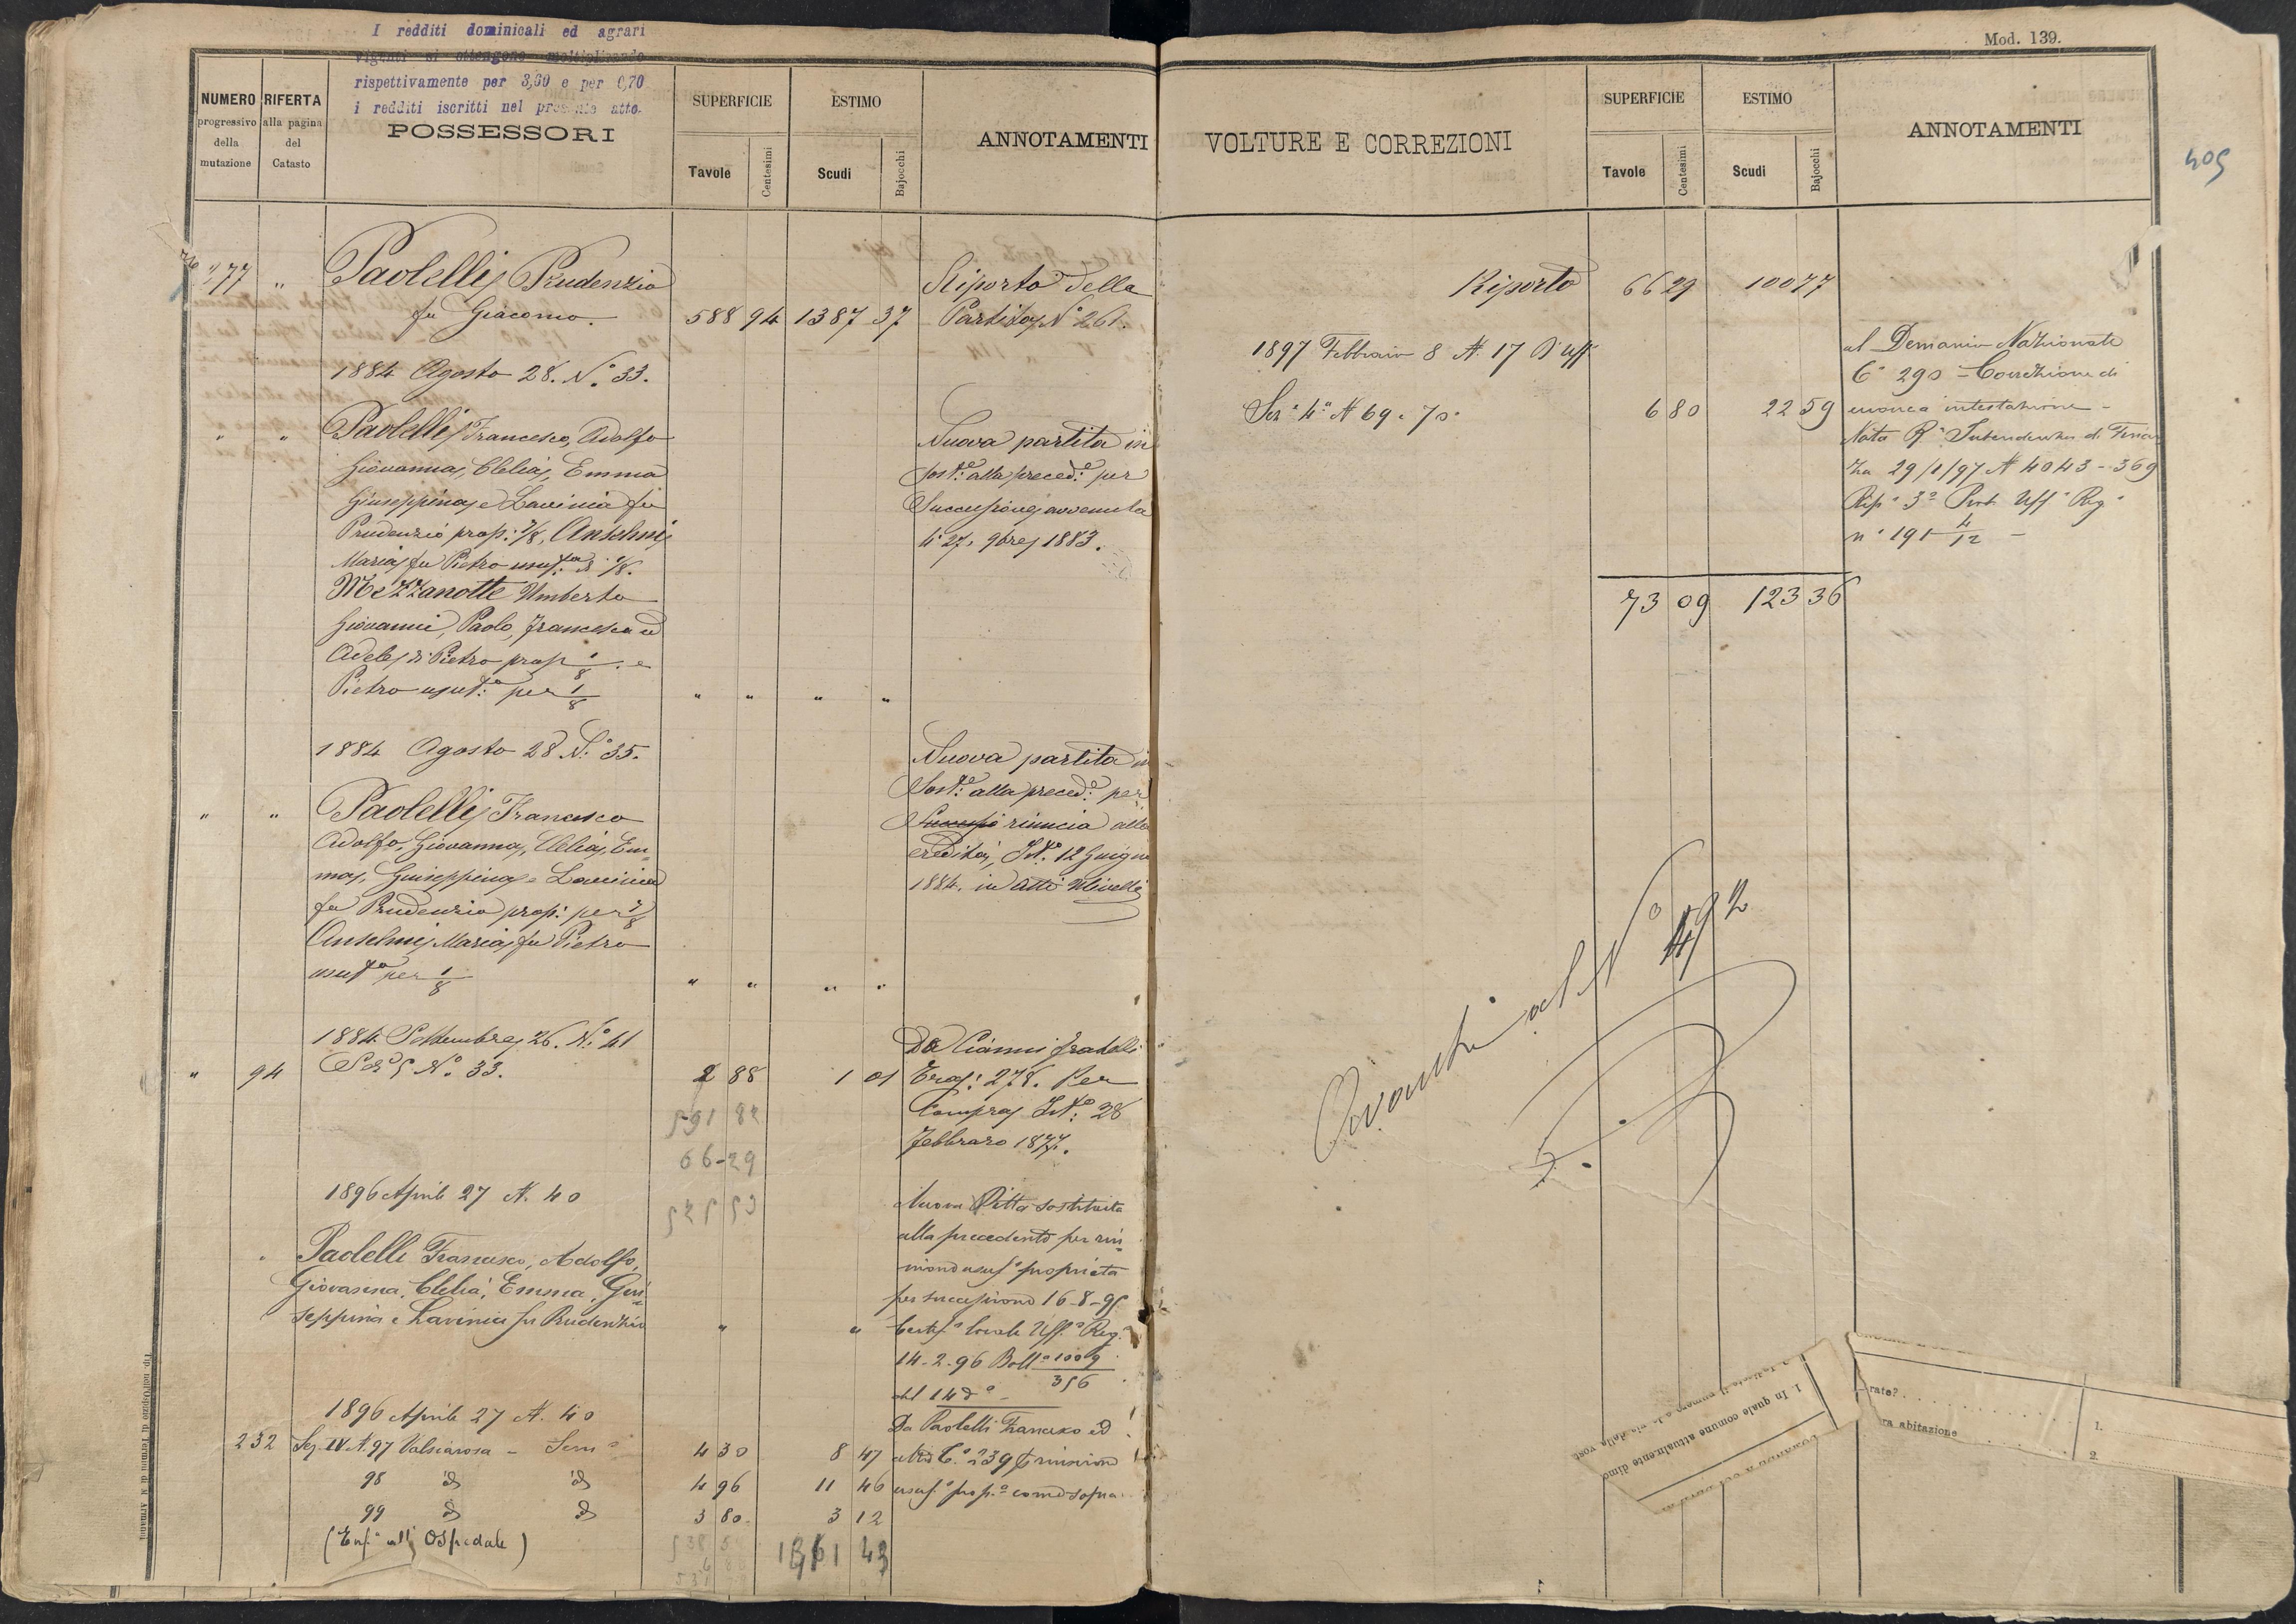 I redditi dominicali ed agrari
vigenti si ottengono moltiplicando
rispettivamente per 3,60 e per 0,70
i redditi iscritti nel presente atto.
NUMERO progressivo della mutazione
RIFERTA alla pagina del Catasto
POSSESSORI
SUPERFICIE
Tavole
Centesimi
ESTIMO
Scudi
Bajocchi
ANNOTAMENTI
277 " Paolelli Prudenzio Riporto della
fu Giacomo. 588 94 1387 37 Partita N.° 261.
1884 Agosto 28. N.° 33.
" " Paolelli Francesco, Adolfo Nuova partita in
Giovanna, Clelia, Emma sost.e alla preced.e per
Giuseppina, e Lavinia fu Successione avvenuta
Prudenzio prop: 7/8, Anselmi li 27. 9bre 1883.
Maria fu Pietro usuf.a di 1/8.
Mezzanotte Umberto
Giovanni, Paolo, Francesca ed
Adele di Pietro prop 1/8. e
Pietro usuf.o per 1/8 " " " "
1884 Agosto 28 N.° 35. Nuova partita in
Sost.e alla preced.e per
" " Paolelli Francesco Successi rinuncia alla
Adolfo, Giovanna, Clelia, Em= eredità, Ist.o 12 Giugno
ma, Giuseppina e Lavinia 1884. in atti
fu Prudenzio prop: per 7/8
Anselmi Maria fu Pietro
usuf.a per 1/8 " " " "
1884. Settembre 26. N.° 41 Da Cianni fratelli
" 94 Sez.e 5 N.° 33. 2 88 1 01 278. Per
591 82 Compra Ist.o 28
66-29 Febbraro 1877.
1896 Aprile 27 N. 40 525 53 Nuova Ditta sostituita
alla precedente per riu=
" Paolelli Francesco, Adolfo, nione usuf.o proprietà
Giovanna, Clelia, Emma, Giu= per successione 16-8-95
seppina e Lavinia fu Prudenzio " " Certif.o Uff.o Reg.o
14-2-96 Boll.o 1009
356
del 14 d.o
1896 Aprile 27 N. 40 Da Paolelli Francesco ed
232 Sez. IV N. 97 Valviarosa - Sem.o 4 30 8 47 altri C.a 239 p riunione
98 id id 4 96 11 46 usuf.o prop.a come sopra
99 id id 3 80 3 12
(Enf.a all' Ospedale) 1361 43
Tip. nell'Ospizio di Termini di N. Armanni
Mod. 139.
VOLTURE E CORREZIONI
SUPERFICIE
Tavole
Centesimi
ESTIMO
Scudi
Bajocchi
ANNOTAMENTI
405
Riporto 66 29 100 77
1897 Febbraio 8 N. 17 D'uff. al Demanio Nazionale
C.a 290 - Correzione di
Sez.e 4.a N 69 e 70. 6 80 22 59 erronea intestazione -
Nota R.a Intendenza di Finan
za 29/1/97 N 4043-369
Rip.o 3.a Prot. Uff.o Reg.o
n.° 191 4/12 -
73 09 123 36
Avanti al N.° 492
1. In quale comune attualmente dimo
rate?
ra abitazione
1.
2.